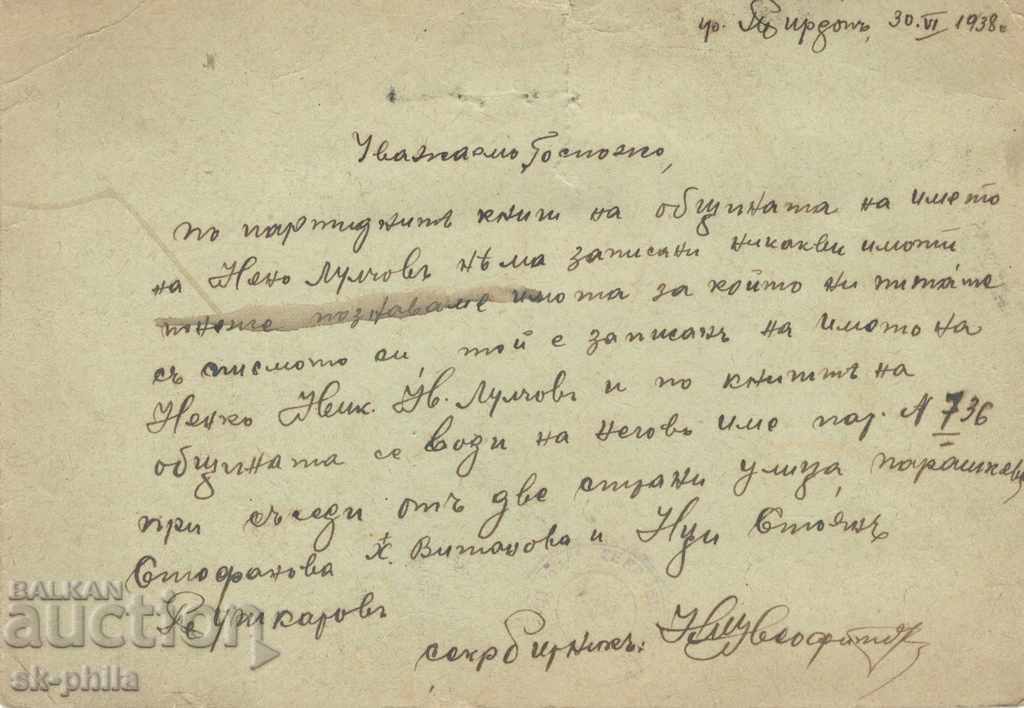 гр. Пирдопъ, 30.VI 1938 г
Уважаема Госпожо,
По партиднитѣ книги на общината на името
на Нено Лулчовъ нѣма записани никакви имоти
познаваме имота за който ни питате
съ писмото си той е записанъ на името на
Ненко Ник. Ив. Лулчовъ и по книгитѣ на
общината се води на негово име пар. N 736
при съседи отъ две страни улица, Парашкева
Стофанова Х. Витанова и Стоянъ
Пушкаровъ
секр бирникъ:
BALKAN
auction
sk-phila